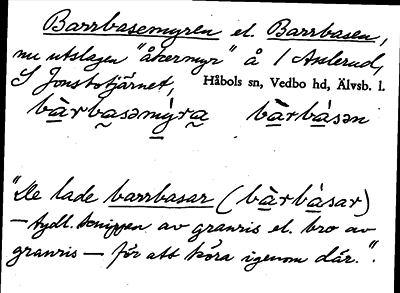 Barrbasemyren el. Barrbasen,
nu utslagen "åkermyr" å 1 Aslerud,
S Jonsbotjärnet, Håbols sn, Vedbo hd, Älvsb. l.
bàrbasəmýra bàrbásən
"De lade barrbasar (bàrbásar)
— tydl. knippen av granris el. bro av
granris — för att köra igenom där."